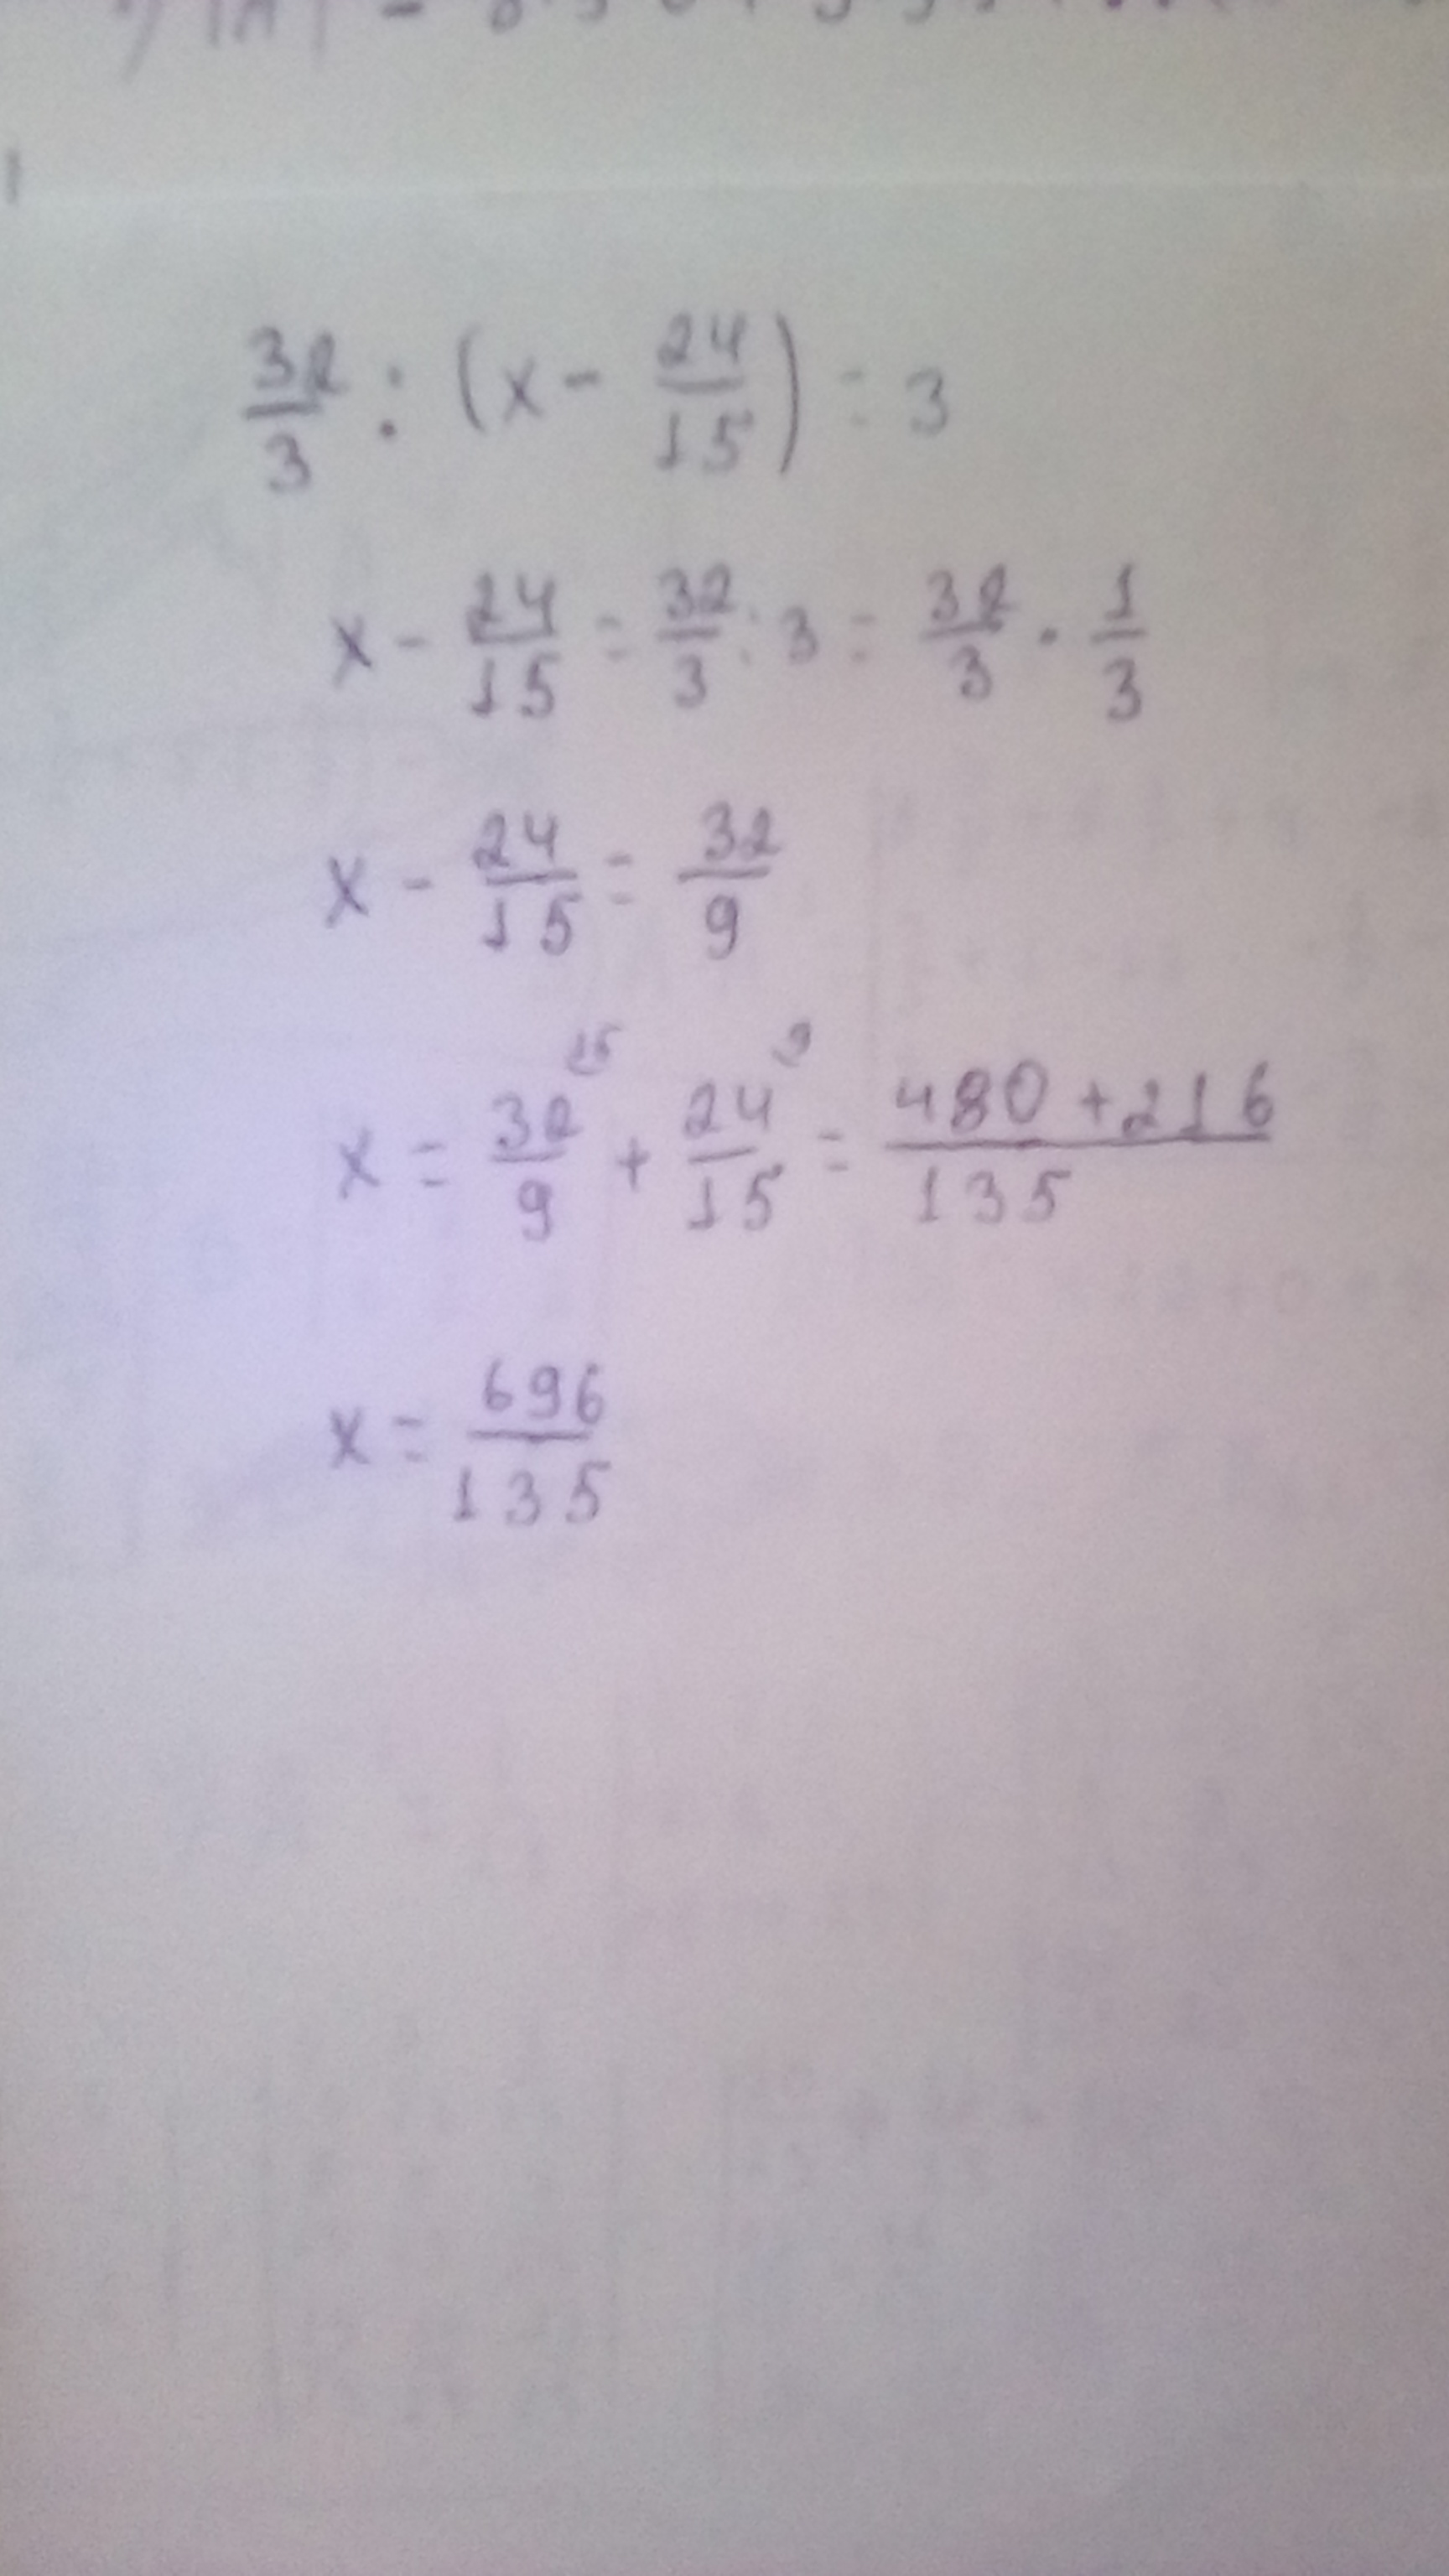 32/3 : (x - 24/15) = 3
x - 24/15 = 32/3 : 3 = 32/3 · 1/3
x - 24/15 = 32/9
x = 32/9 ¹⁵ + 24/15 ⁹ = 480 + 216/135
x = 696/135